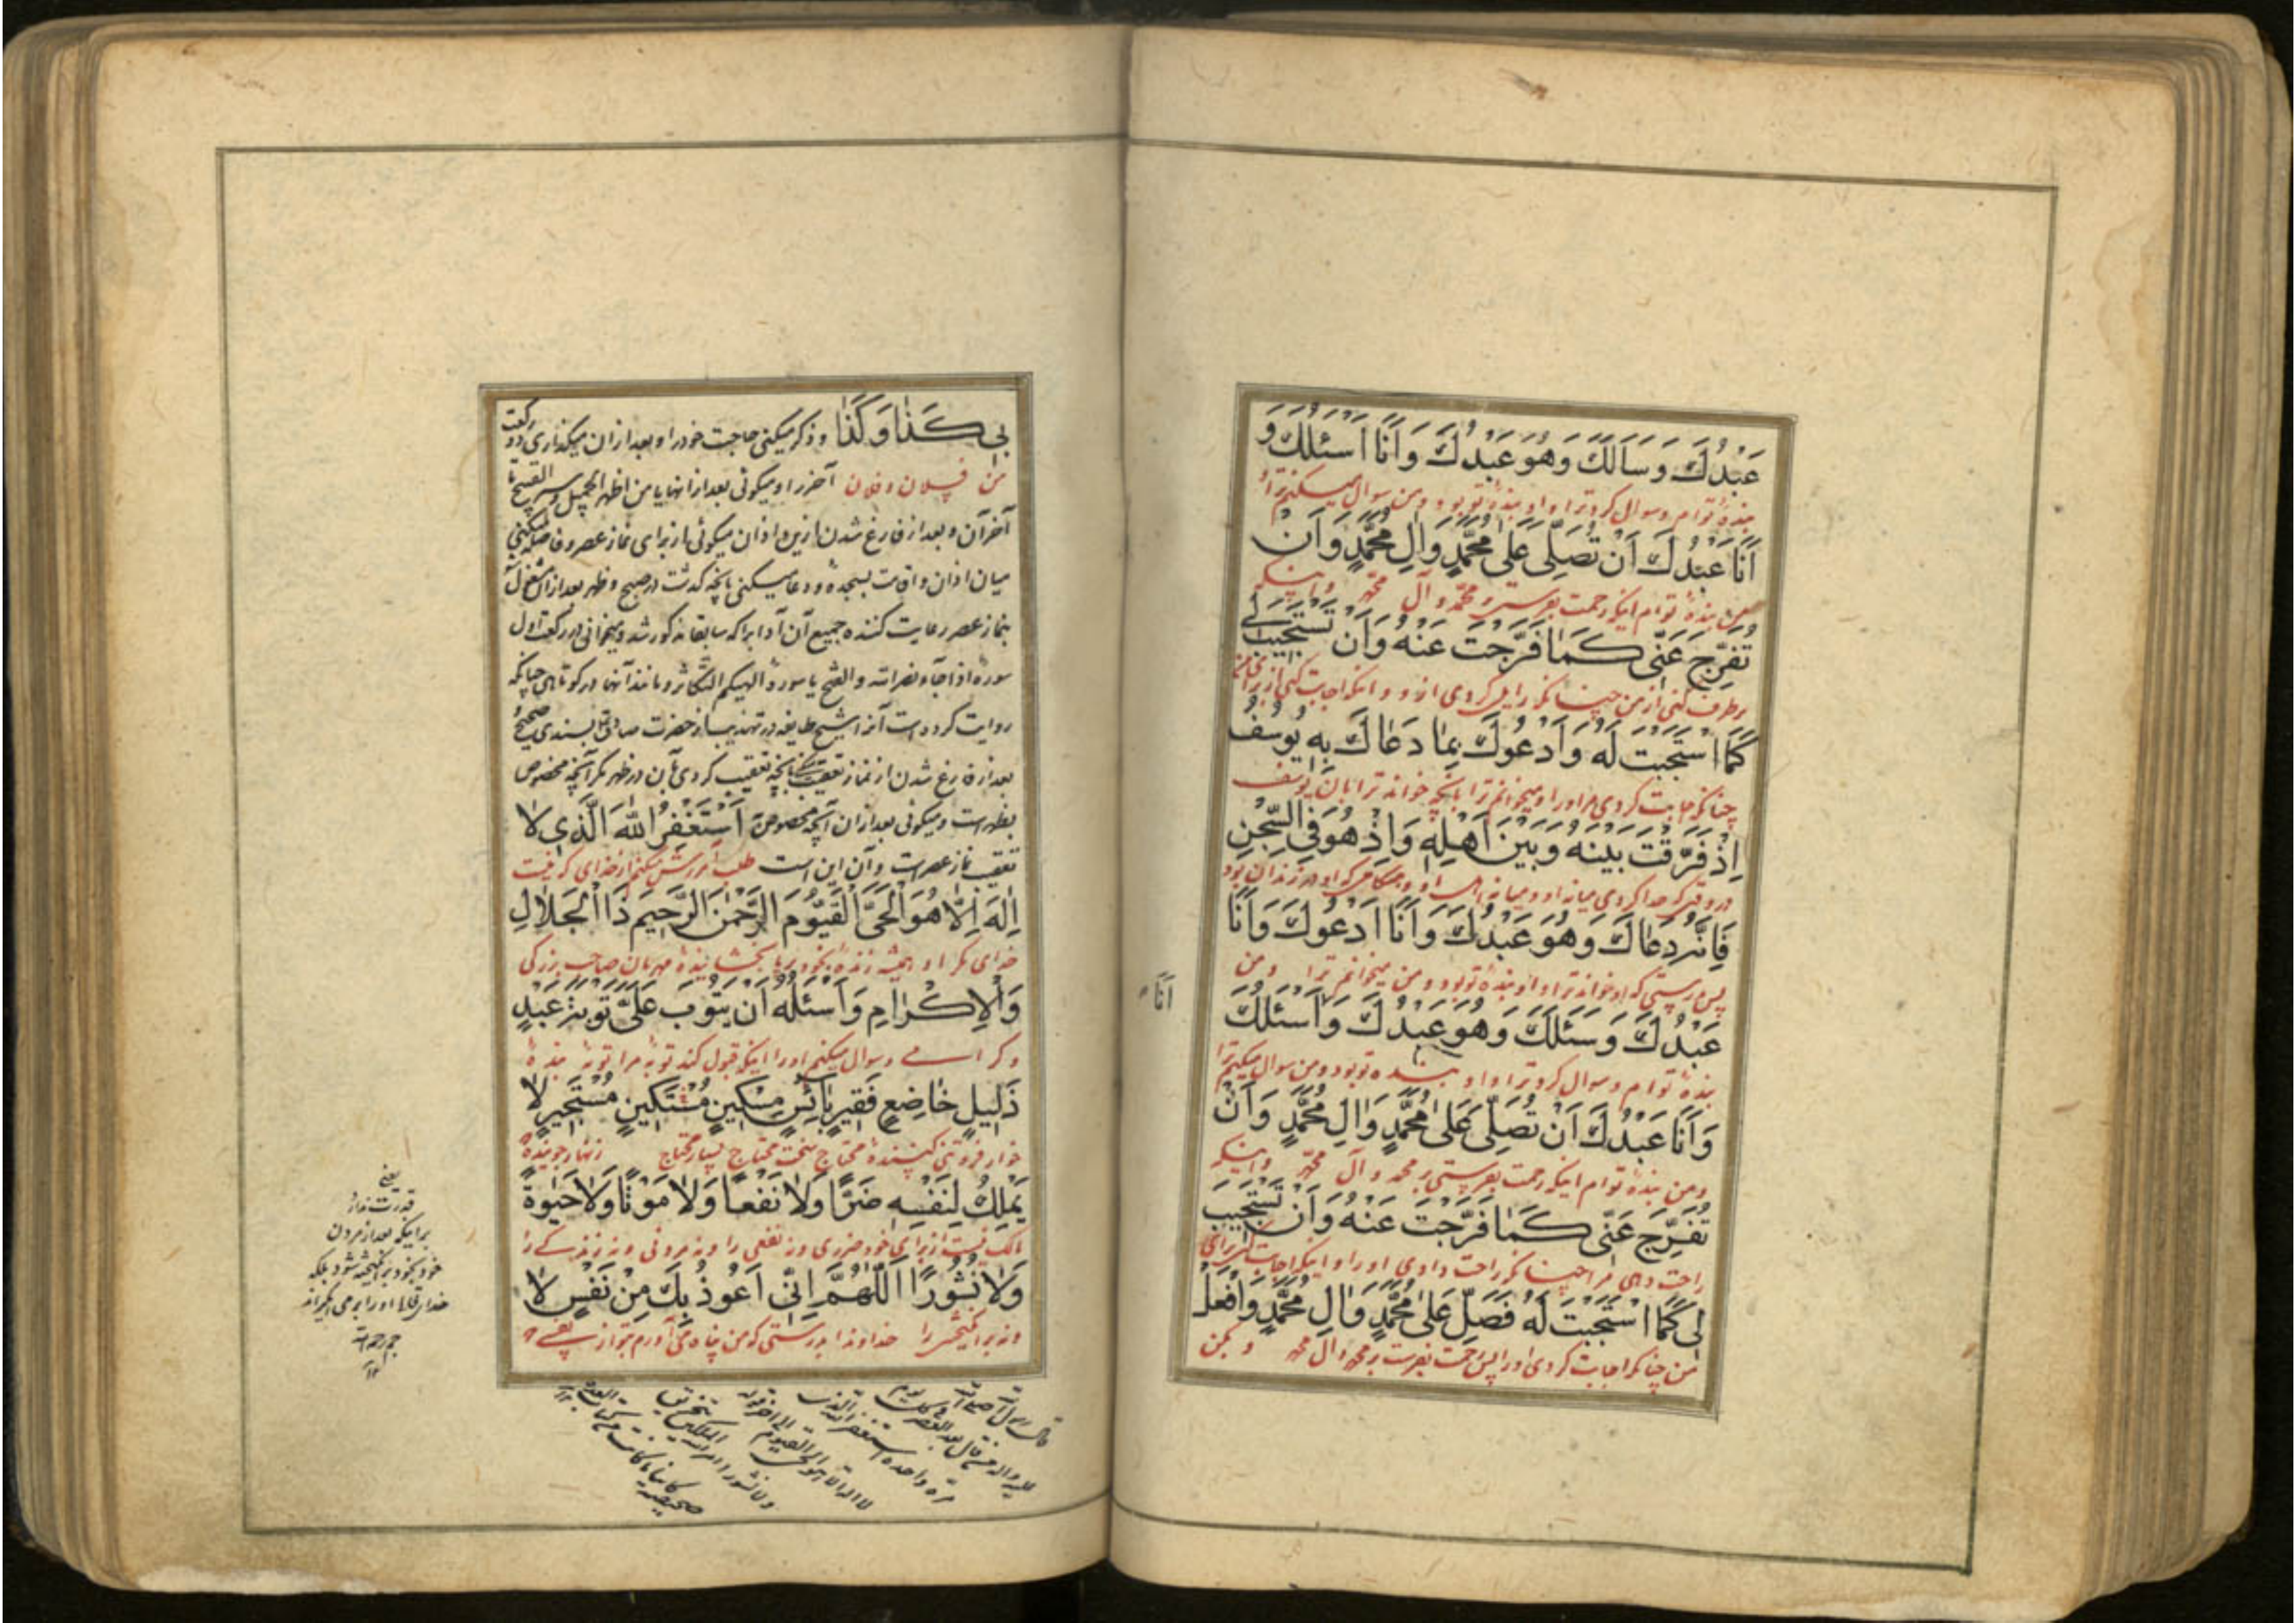 عَبْدُكَ وَسَاَلَكَ وَهُوَ عَبْدُكَ وَاَنَا اَسْئَلُكَ وَ
بندهٔ توام و سوال کرد ترا و او بندهٔ تو بود و من سوال میکنم ترا
اَنَا عَبْدُكَ اَنْ تُصَلِّىَ عَلىٰ مُحَمَّدٍ وَاٰلِ مُحَمَّدٍ وَاَنْ
من بندهٔ توام اینکه رحمت بفرستی بر محمّد و آل محمّد و اینکه
تُفَرِّجَ عَنّى كَمٰا فَرَّجْتَ عَنْهُ وَاَنْ تَسْتَجيبَ لى
برطرف کنی از من چنانکه زایل کردی از او و اینکه اجابت کنی از برای من
كَمَا اسْتَجَبْتَ لَهُ وَاَدْعُوكَ بِمٰا دَعٰاكَ بِهِ يُوسُفُ
چنانکه اجابت کردی مر او را و میخوانم ترا بانچه خواند ترا بان یوسف
اِذْ فَرَّقْتَ بَيْنَهُ وَبَيْنَ اَهْلِهِ وَاِذْ هُوَ فِى السِّجْنِ
در وقتی که جدا کردی میانه او و میانه اهل او و هنگامی که او در زندان بود
فَاِنَّهُ دَعٰاكَ وَهُوَ عَبْدُكَ وَاَنَا اَدْعُوكَ وَاَنَا
پس بدرستی که او خواند ترا و او بندهٔ تو بود و من میخوانم ترا و من
اَنَا
عَبْدُكَ وَسَئَلَكَ وَهُوَ عَبْدُكَ وَاَسْئَلُكَ
بندهٔ توام و سوال کرد ترا و او بنده تو بود و من سوال میکنم ترا
وَاَنَا عَبْدُكَ اَنْ تُصَلِّىَ عَلىٰ مُحَمَّدٍ وَاٰلِ مُحَمَّدٍ وَاَنْ
و من بندهٔ توام اینکه رحمت بفرستی بر محمد و آل محمّد و اینکه
تُفَرِّجَ عَنّى كَمٰا فَرَّجْتَ عَنْهُ وَاَنْ تَسْتَجيبَ
راحت دهی مرا چنانکه راحت دادی او را و اینکه اجابت کنی برای
لى كَمَا اسْتَجَبْتَ لَهُ فَصَلِّ عَلىٰ مُحَمَّدٍ وَاٰلِ مُحَمَّدٍ وَافْعَلْ
من چنانکه اجابت کردی او را پس رحمت بفرست بر محمد و آل محمد و بکن
بى كَذٰا وَكَذٰا و ذکر میکنی حاجت خود را و بعد از ان میکذاری دو رکعت
من فلان و فلان آخر را و میکوئی بعد از انها یا من اظهر الجمیل و ستر القبیح تا
آخر آن و بعد از فارغ شدن ازین و اذان میکوئی از برای نماز عصر و فاصله میکنی
میان اذان و اقامت بسجده و دعا میکنی بانچه کذشت در صبح و ظهر بعد از ان
بنماز عصر رعایت کننده جمیع آن آداب را که سابقا مذکور شد و میخوانی در رکعت اول
سورهٔ اذا جاء نصر الله و الفتح یا سورهٔ الهیکم التکاثر و مانند آنها در کوتاهی چنانکه
روایت کرده است آنرا شیخ طایفه در تهذیب از حضرت صادق بسندی صحیح
بعد از فارغ شدن از نماز تعقیب بانچه تعقیب کردی بآن در ظهر مکر آنچه مخصوص
بظهر است و میکوئی بعد از ان آنچه مخصوص اَسْتَغْفِرُ اللّٰهَ الَّذى لٰا
تعقیب نماز عصر است و آن این است طلب آمرزش میکنم از خدای که نیست
اِلٰهَ اِلّٰا هُوَ الْحَىَّ الْقَيُّومَ الرَّحْمٰنَ الرَّحيمَ ذَا الْجَلٰالِ
خدای مکر او همیشه زندهٔ بخود برپا بخشایندهٔ مهربان صاحب بزرکی
وَالْاِكْرٰامِ وَاَسْئَلُهُ اَنْ يَتُوبَ عَلَىَّ تَوْبَةَ عَبْدٍ
و کرامی و سوال میکنم او را اینکه قبول کند توبهٔ مرا توبهٔ بندهٔ
ذَليلٍ خٰاضِعٍ فَقيرٍ بٰائِسٍ مِسْكينٍ مُسْتَكينٍ مُسْتَجيرٍ لٰا
خوار فروتنی کننده محتاج سخت محتاج بسیار محتاج زنهار جویندهٔ
يَمْلِكُ لِنَفْسِهِ ضَرًّا وَلٰا نَفْعًا وَلٰا مَوْتًا وَلٰا حَيٰوةً
مالک نیست از برای خود ضرری و نه نفعی را و نه مردنی و نه زندکی را
وَلٰا نُشُورًا اَللّٰهُمَّ اِنّى اَعُوذُ بِكَ مِنْ نَفْسٍ لٰا
و نه برانکیختن را خداوندا بدرستی که من پناه می آورم بتو از نفسی
یعنی
قدرت ندارد
برا اینکه بعد از مردن
خود بخود برانکیخته شود بلکه
خدای تعالی او را برمی انکیزاند
قال رسول الله صلی الله
علیه و اله من قال بعد العصر فی کل یوم
مرة واحدة استغفر الله الذی
لا اله الا هو الحی القیوم الی اخر قوله
و لا نشورا امر الله الملکین بتخریق
صحیفته کائنا ما کانت